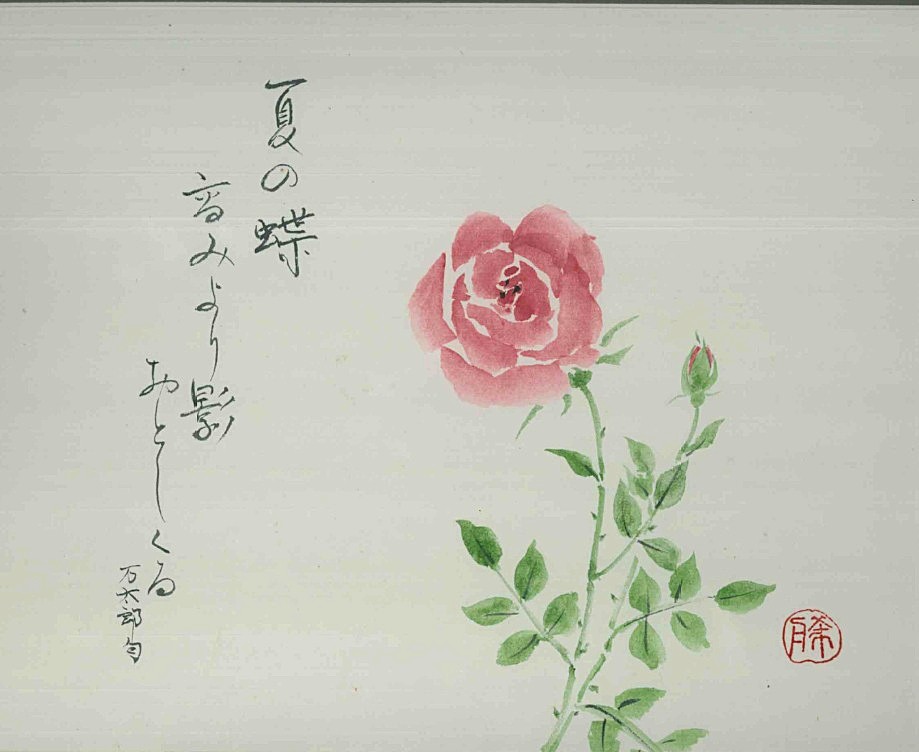 夏の蝶
高みより影
おとしくる
万太郎句